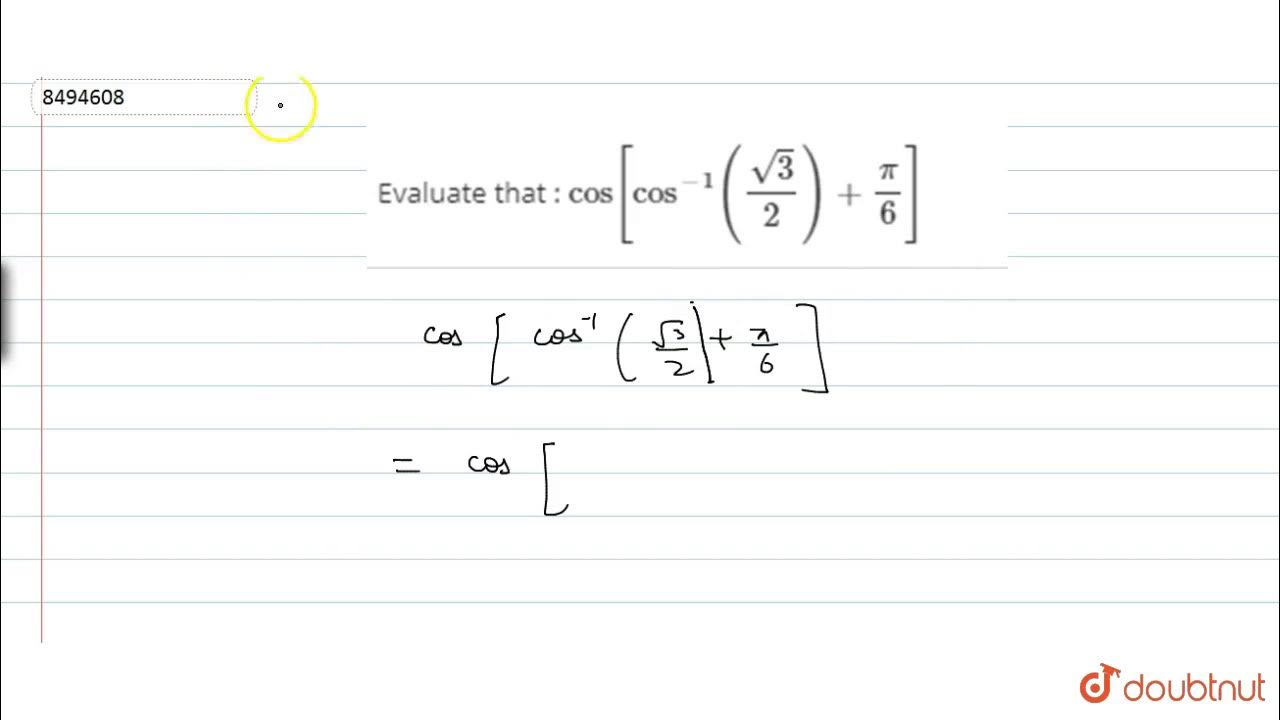 8494608
Evaluate that : cos[cos⁻¹(√3/2) + π/6]
cos [ cos⁻¹ ( √3/2 ) + π/6 ]
= cos [
doubtnut